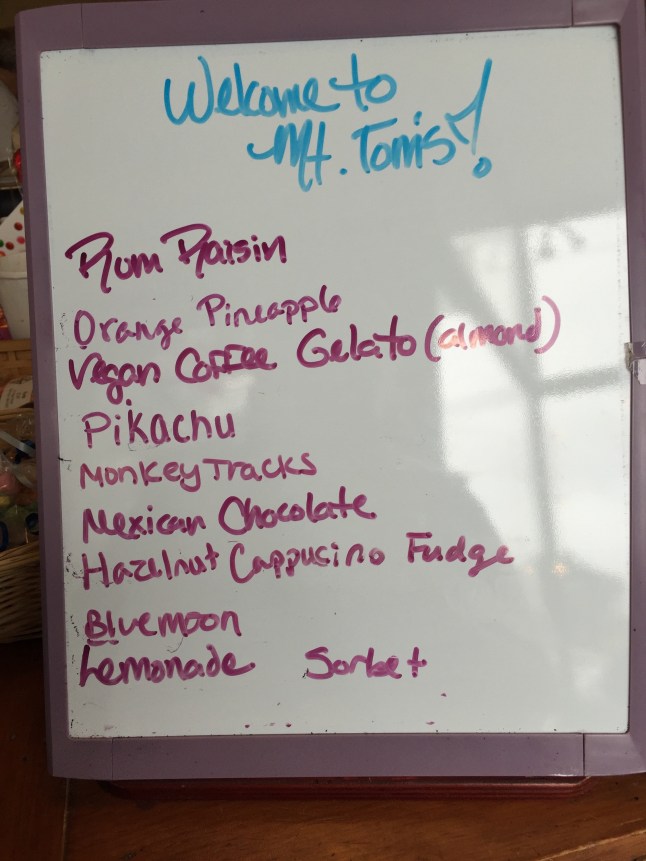 Welcome to
Mt. Tom's!
Rum Raisin
Orange Pineapple
Vegan Coffee Gelato (almond)
Pikachu
Monkey Tracks
Mexican Chocolate
Hazelnut Cappucino Fudge
Bluemoon
Lemonade Sorbet